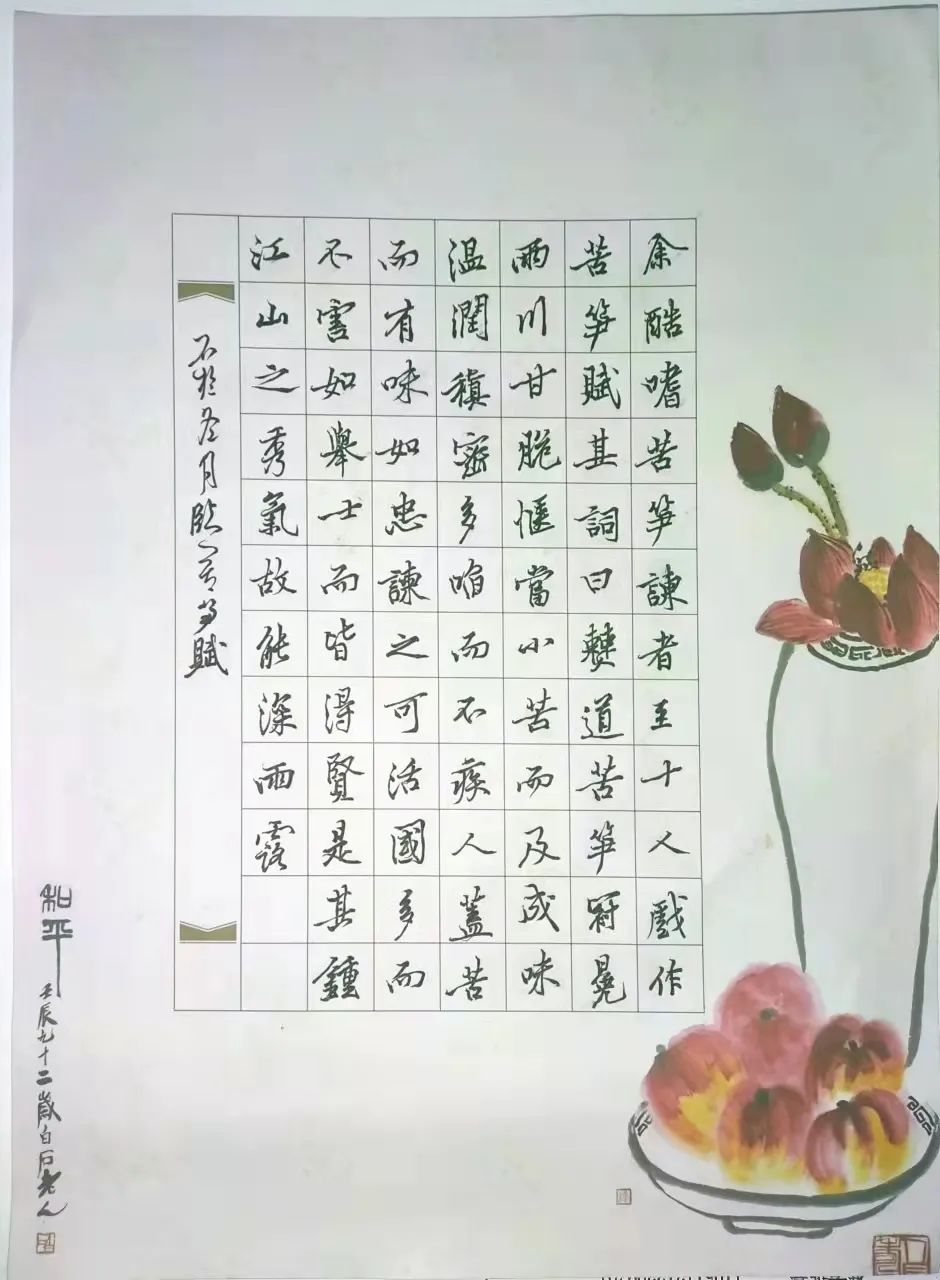 余酷嗜苦笋諫者至十人戲作
苦笋賦其詞曰僰道苦笋冠冕
兩川甘脆惬當小苦而及成味
温潤稹密多啗而不疾人蓋苦
而有味如忠諫之可活國多而
不害如舉士而皆得賢是其鍾
江山之秀氣故能深雨露
石於冬月臨苦笋賦
和平
壬辰九十二歲白石老人